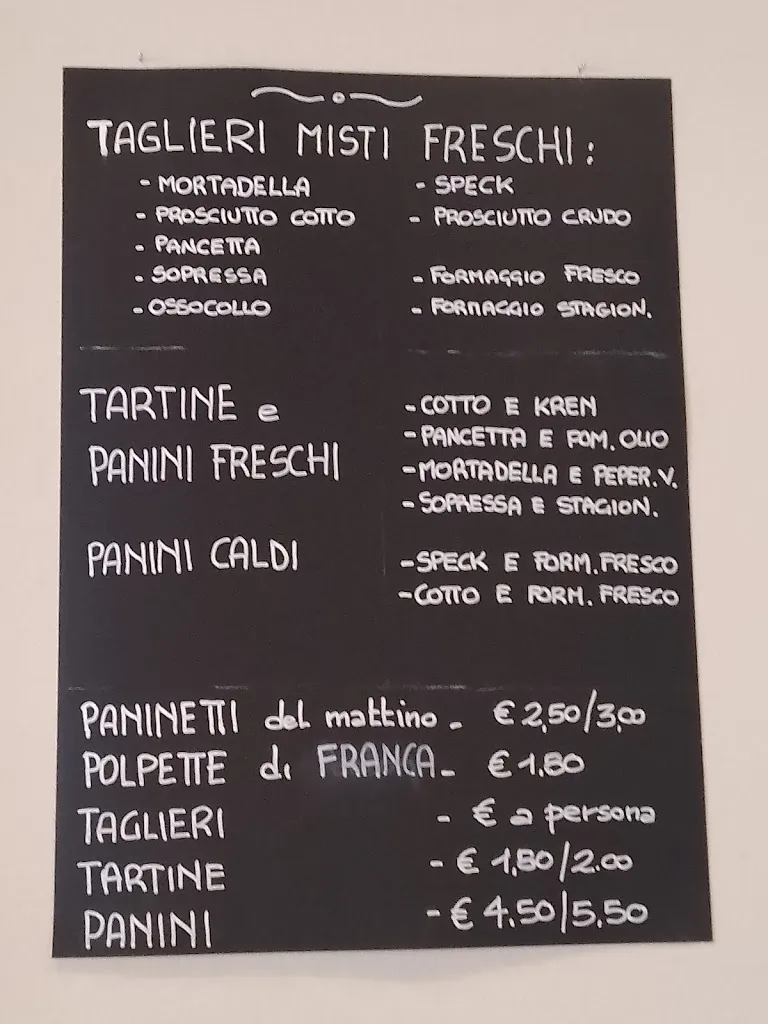 TAGLIERI MISTI FRESCHI:
- MORTADELLA
- PROSCIUTTO COTTO
- PANCETTA
- SOPRESSA
- OSSOCOLLO
- SPECK
- PROSCIUTTO CRUDO
- FORMAGGIO FRESCO
- FORMAGGIO STAGION.
TARTINE e
PANINI FRESCHI
- COTTO E KREN
- PANCETTA E POM. OLIO
- MORTADELLA E PEPER.V.
- SOPRESSA E STAGION.
PANINI CALDI
- SPECK E FORM. FRESCO
- COTTO E FORM. FRESCO
PANINETTI del mattino - € 2,50/3,00
POLPETTE di FRANCA - € 1.80
TAGLIERI - € a persona
TARTINE - € 1,80/2.00
PANINI - € 4.50/5.50